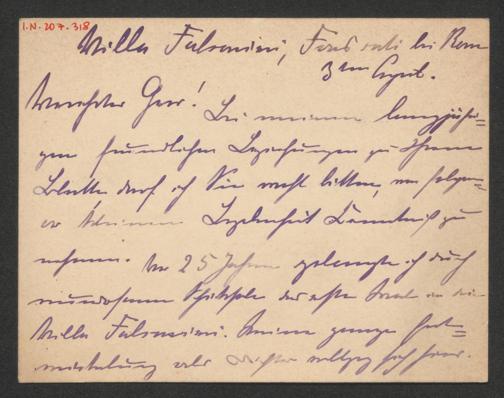 I.N. 207.318
Villa Falconieri, Frascati bei Rom
3ten April.
Verehrter Herr!
Bei meinen langjähri=
gen freundlichen Beziehungen zu Ihrem
Blatte darf ich Sie wohl bitten, von folgen=
er kleinen Begebenheit Kenntniß zu
nehmen. Vor 25 Jahren gelangte ich durch
wundersame Schicksale das erste Mal in die
Villa Falconieri. Meine ganze Ent=
wickelung als Dichter vollzog sich hier.